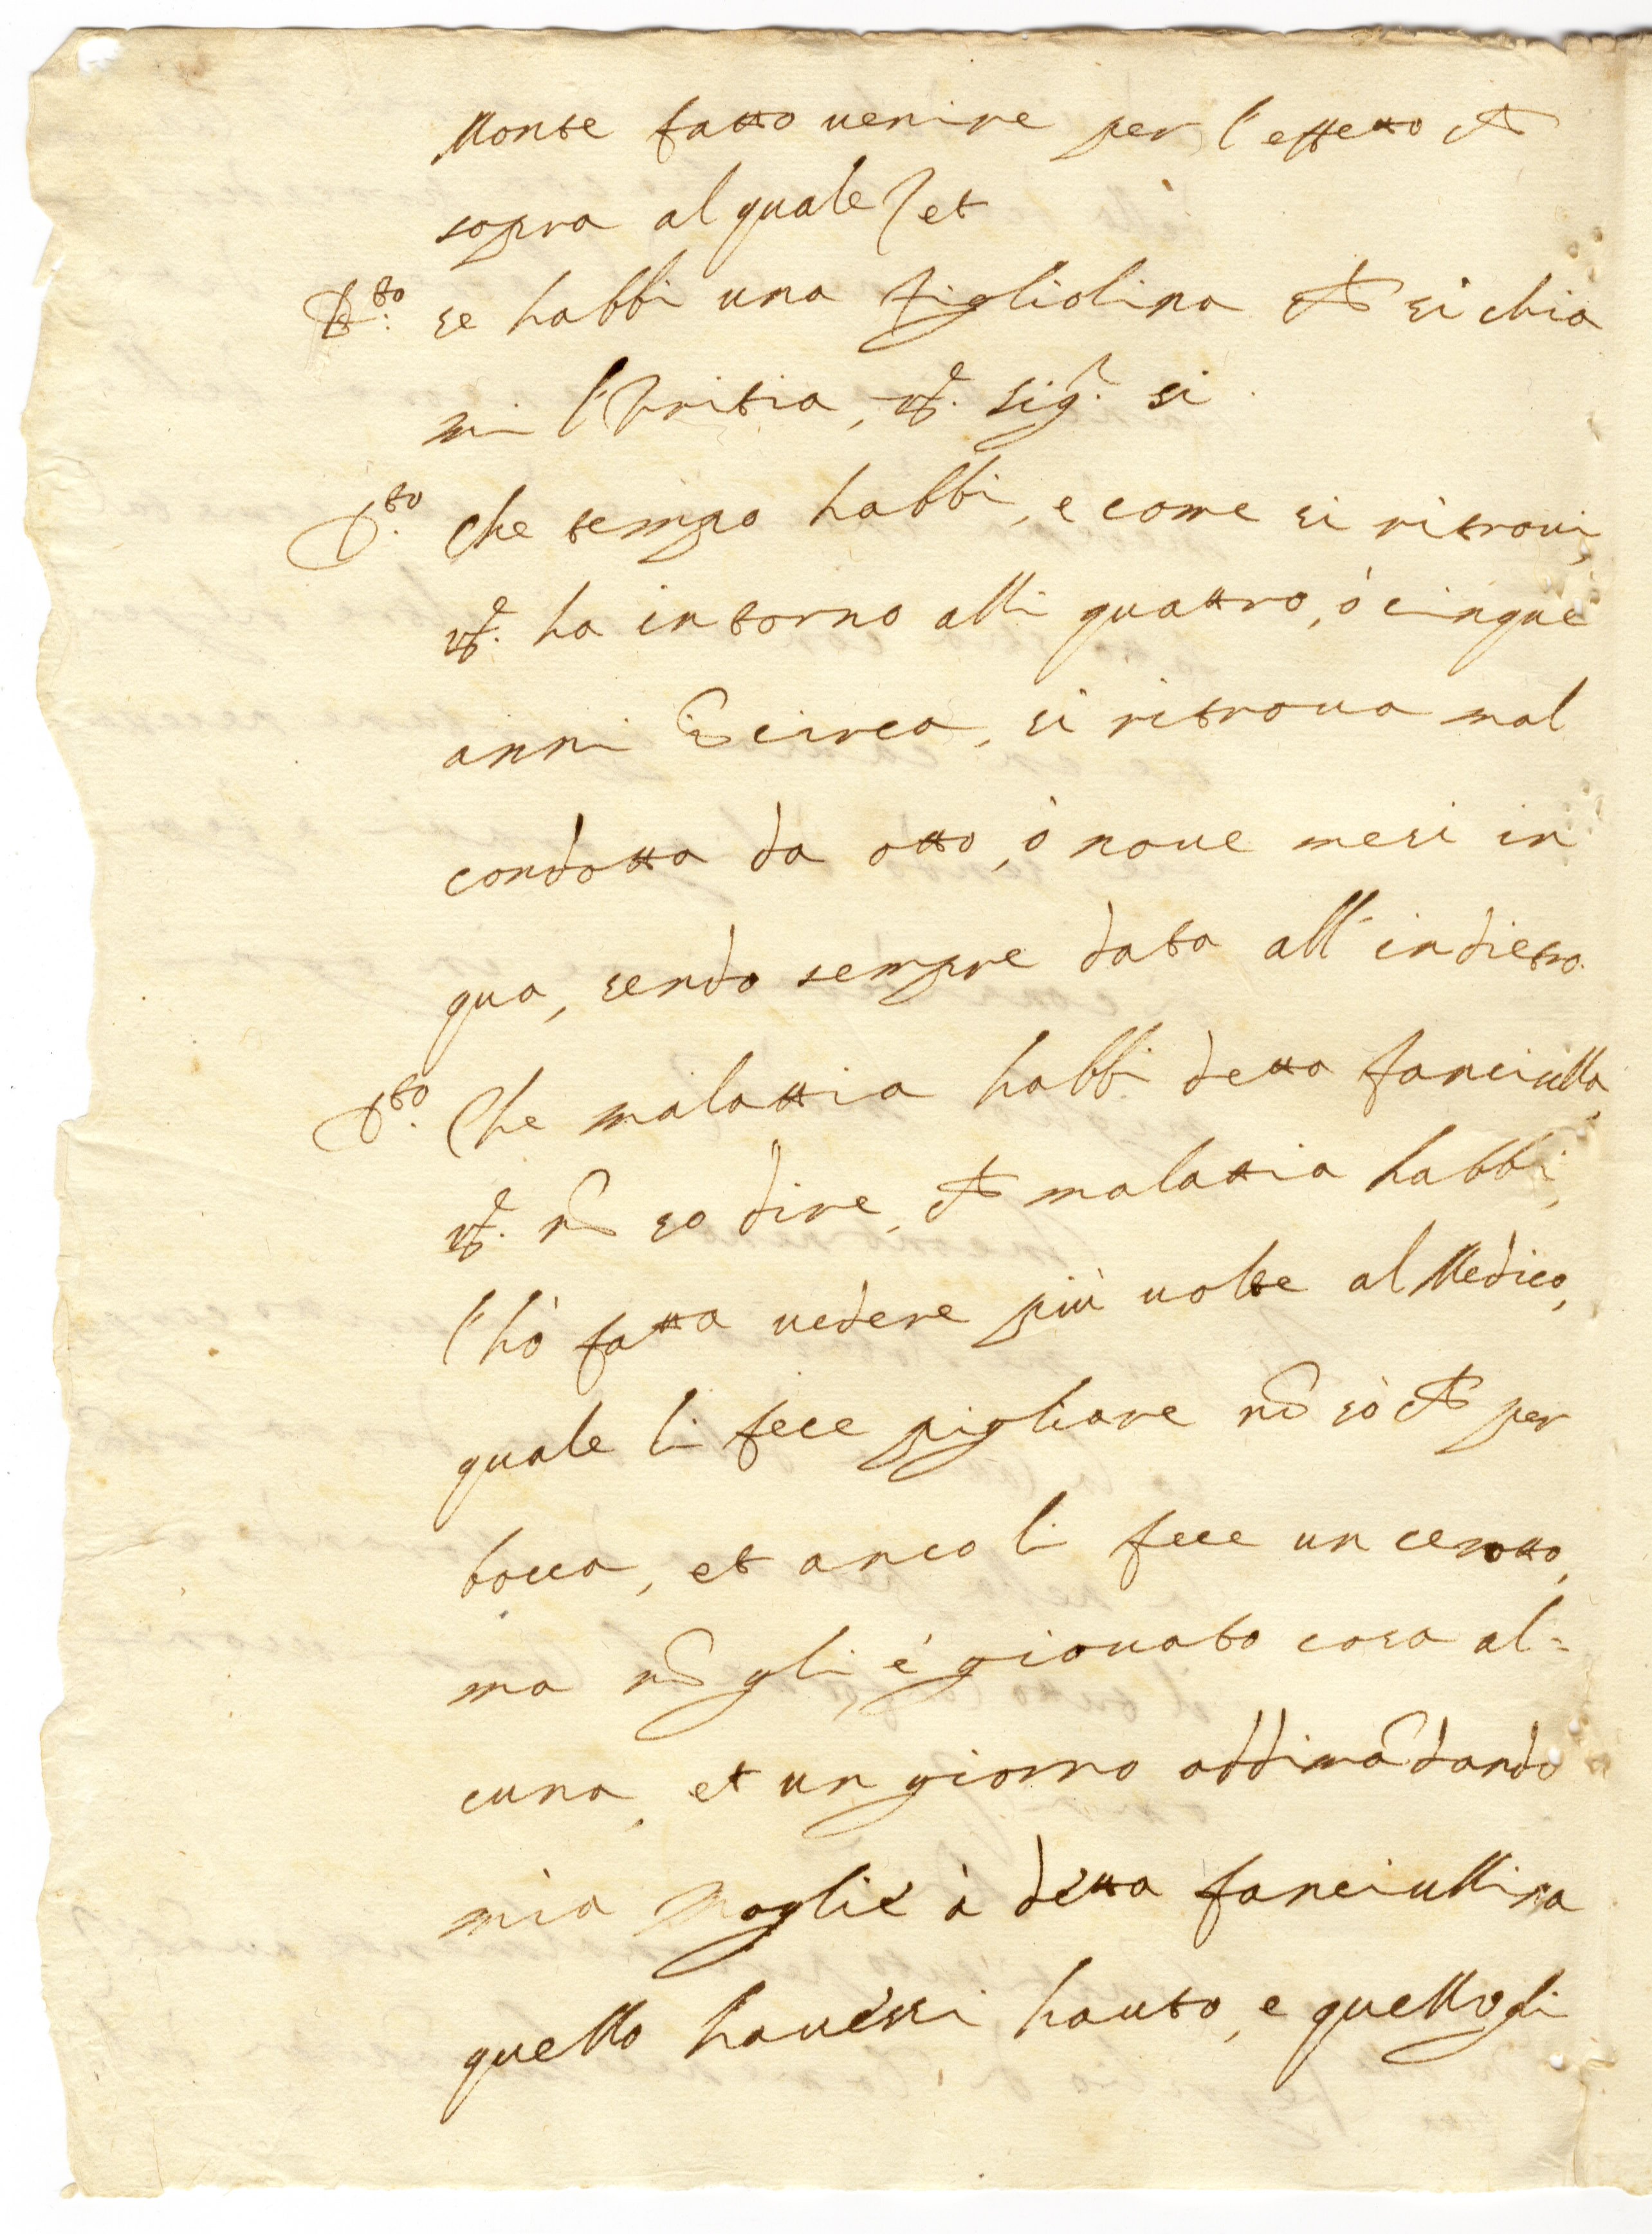 Monte fatto uenire per l'effetto ch
sopra al quale et
D.to se habbi una figliolina ch si chia
mi sig.r si
D.to che tempo habbi, e come si ritroui,
R. ha intorno alli quattro, ò cinque
anni in circa, si ritroua mal
condotta da otto, ò noue mesi in
qua, sendo sempre data all'indietro.
D.to Che malattia habbi detta fanciulla,
R. nō so dire, ch malattia habbi,
l'hò fatta uedere più uolte al Medico,
quale li fece pigliare nō sò ch per
bocca, et anco li fece un cerotto,
ma nō gli è giouato cosa al=
cuna, et un giorno addimādando
mia Moglie à detta fanciullina
quello hauessi hauto, e quello gli